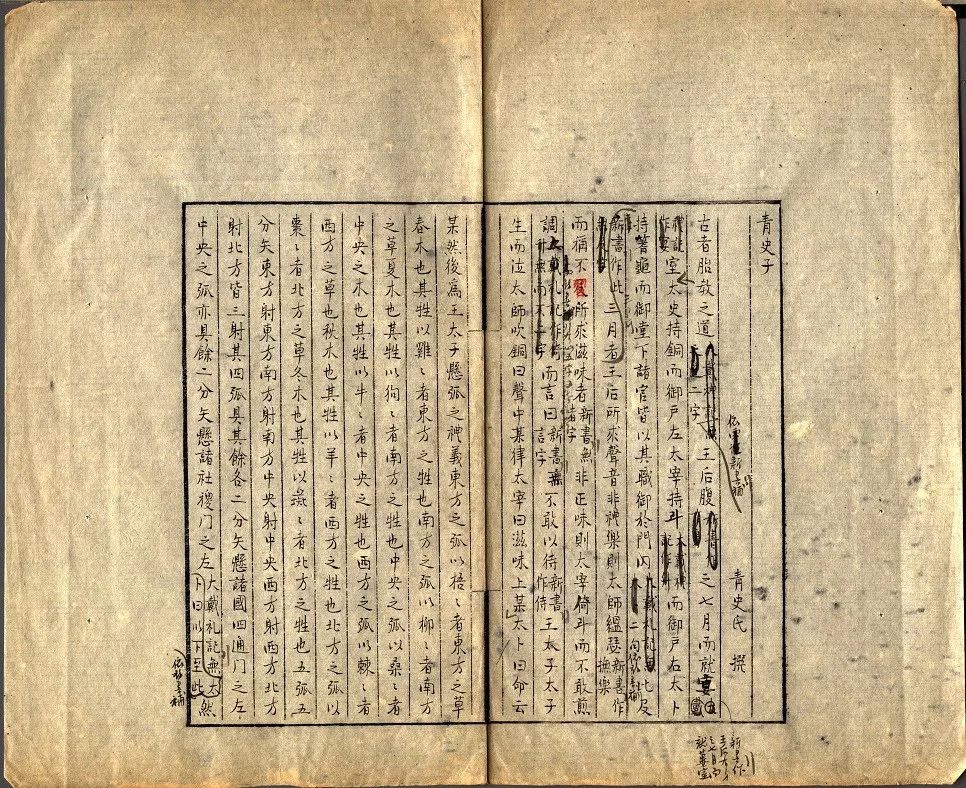 青史子
青史氏 撰
古者胎教之道王后腹之七月而就
室太史持銅而御戶左太宰持斗而御戶右太卜
持蓍龜而御堂下諸官皆以其職御於門內比及
三月者王后所求聲音非禮樂則太師縕瑟新書作撫樂
而稱不習所求滋味者新書無者字非正味則太宰倚斗而不敢煎
調而言曰新書無言字不敢以待新書作侍王太子太子
生而泣太師吹銅曰聲中某律太宰曰滋味上某太卜曰命云
某然後爲王太子懸弧之禮義東方之弧以梧〻者東方之草
春木也其牲以雞〻者東方之牲也南方之弧以柳〻者南方
之草夏木也其牲以狗〻者南方之牲也中央之弧以桑〻者
中央之木也其牲以牛〻者中央之牲也西方之弧以棘〻者
西方之草也秋木也其牲以羊〻者西方之牲也北方之弧以
棗〻者北方之草冬木也其牲以彘〻者北方之牲也五弧五
分矢東方射東方南方射南方中央射中央西方射西方北方
射北方皆三射其四弧具其餘各二分矢懸諸國四通門之左
中央之弧亦具餘二分矢懸諸社稷門之左大戴礼記無太卜曰以下至此然